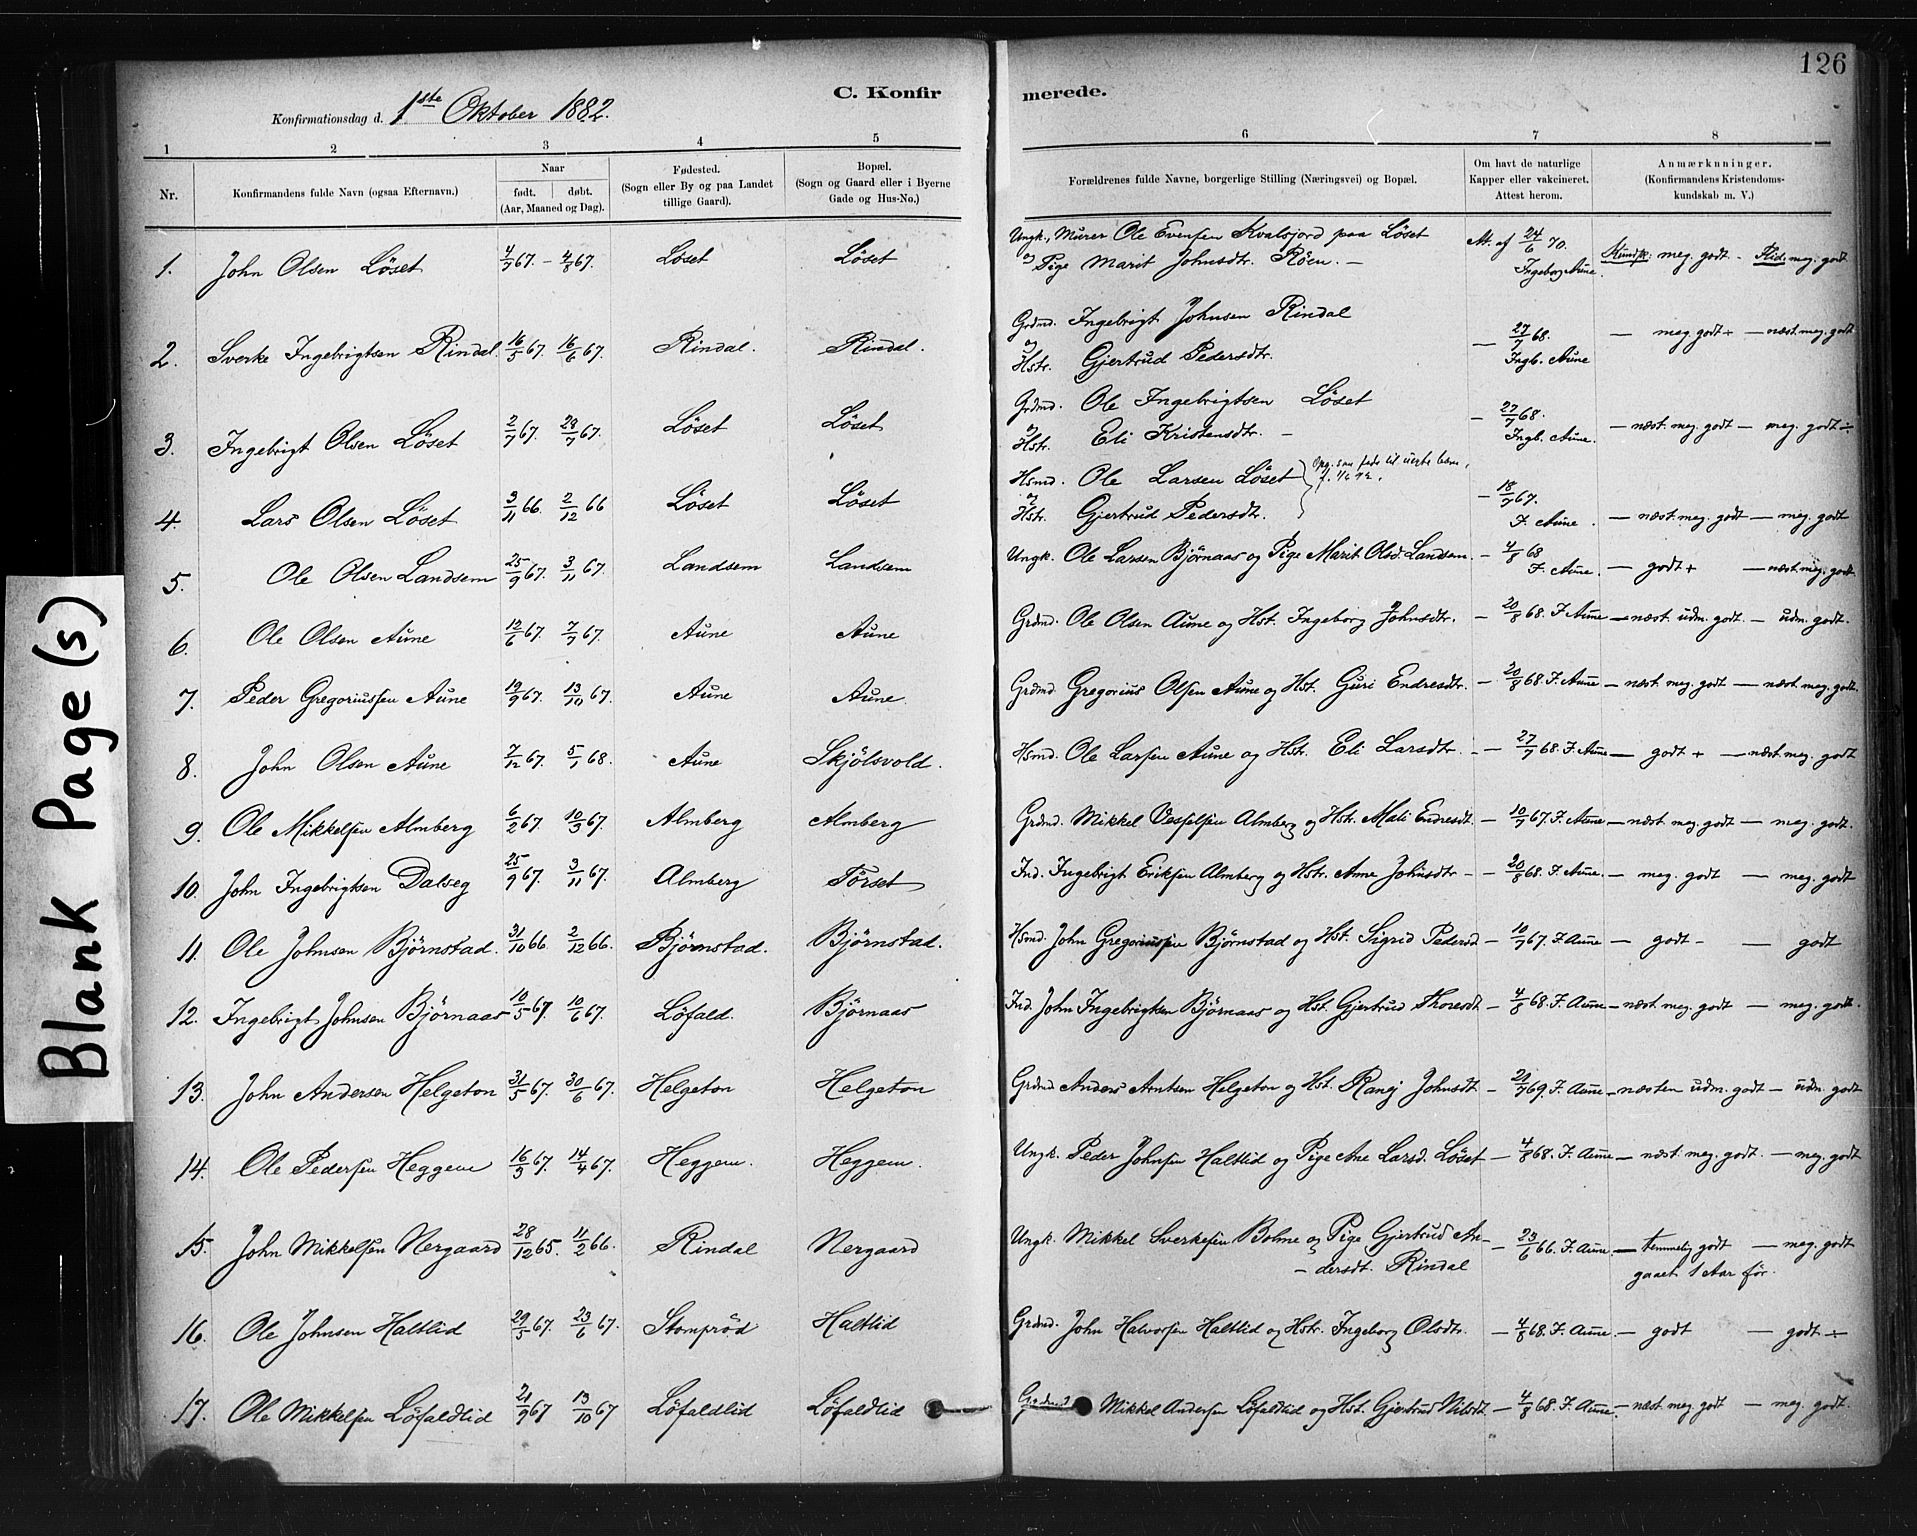 126
C. Konfir merede.
Konfirmationsdag d. 1ste Oktober 1882.
1 2 3 4 5 6 7 8
Nr. Konfirmandens fulde Navn (ogsaa Efternavn.) Naar født. døbt. (Aar, Maaned og Dag). Fødested. (Sogn eller By og paa Landet tillige Gaard). Bopæl. (Sogn og Gaard eller i Byerne Gade og Hus-No.) Forældrenes fulde Navne, borgerlige Stilling (Næringsvei) og Bopæl. Om havt de naturlige Kapper eller vakcineret. Attest herom. Anmærkninger. (Konfirmandens Kristendoms-kundskab m. V.)
1. John Olsen Löset 4/7 67. – 4/8 67. Löset Löset Ungk., Murer Ole Evensen Kvalsjord paa Löset
og Pige Marit Johnsdtr. Röen. – Att. af 24/6 70. Ingeborg Aune. Kundsk: meg. godt – Flid: meg. godt
2. Sverke Ingebrigtsen Rindal 16/5 67. 16/6 67. Rindal. Rindal. Grdmd. Ingebrigt Johnsen Rindal
og Hstr. Gjertrud Pedersdtr. – 27/7 68. Ingb. Aune – meg. godt + – næst. meg. godt
3. Ingebrigt Olsen Löset 2/7 67. 28/7 67. Löset Löset Grdmd. Ole Ingebrigtsen Löset
og Hstr. Eli Kristensdtr. – – 27/7 68. Ingb. Aune. – næst. meg. godt – meg. godt ÷
4. Lars Olsen Löset 3/11 66. 2/12 66 Löset Löset Hsmd. Ole Larsen Löset
og Hstr. Gjertrud Pedersdtr. – 18/7 67. I. Aune. – næst. meg. godt – meg. godt
5. Ole Olsen Landsem 25/9 67. 3/11 67. Landsem Landsem Ungk. Ole Larsen Björnaas og Pige Marit Olsd. Landsem – 4/8 68 I. Aune. – godt + – næst. meg. godt
6. Ole Olsen Aune 12/6 67. 7/7 67. Aune Aune Grdmd. Ole Olsen Aune og Hst. Ingeborg Johnsdtr. – 20/8 68. I. Aune – næst. udm. godt. – udm. godt.
7. Peder Gregoriussen Aune 19/9 67. 13/10 67. Aune Aune. Grdmd Gregorius Olsen Aune og Hst. Guri Endresdtr. – 20/8 68. I. Aune – næst. meg. godt – næst. meg. godt.
8. John Olsen Aune 7/12 67. 5/1 68. Aune Skjölsvold. Hsmd. Ole Larsen Aune og Hstr. Eli Larsdtr. – 27/7 68. I. Aune – godt + – næst. meg. godt
9. Ole Mikkelsen Almberg 6/2 67. 10/3 67. Almberg Almberg Grdmd. Mikkel Vesselsen Almberg og Hstr. Mali Endresdt. – 10/7 67. I. Aune – næst. meg. godt – meg. godt.
10. John Ingebrigtsen Dalseg 25/9 67. 3/11 67. Almberg Törset Ind. Ingebrigt Eriksen Almberg og Hstr. Ane Johnsdtr – – 20/8 68. I. Aune. – meg. godt – meg. godt
11. Ole Johnsen Björnstad. 31/10 66 2/12 66. Björnstad. Björnstad. Hsmd. John Gregoriussen Björnstad og Hst. Sigrid Pedersd – 10/7 67. I. Aune – godt – – godt
12. Ingebrigt Johnsen Björnaas 10/5 67. 10/6 67. Löfald. Björnaas Ind. John Ingebrigtsen Björnaas og Hst. Gjertrud Thoresdt – 4/8 68. I. Aune – næst. meg. godt – meg. godt.
13. John Andersen Helgeton 31/5 67. 30/6 67. Helgeton Helgeton Grdmd Anders Arntsen Helgeton og Hst. Ranj Johnsdt – 20/7 69. I. Aune – næsten udm. godt – udm. godt
14. Ole Pedersen Heggem 16/3 67. 14/4 67. Heggem. Heggem. Ungk. Peder Johnsen Haltlid og Pige Ane Larsd. Löset – 4/8 68. I. Aune – næst. meg. godt. – meg. godt
15. John Mikkelsen Nergaard 28/12 65. 11/2 66. Rindal Nergaard Ungk. Mikkel Sverkesen Bolme og Pige Gjertrud An-
– dersdt. Rindal – 23/6 66. I. Aune. – temmelig godt – meg. godt
gaaet 1 Aar før.
16. Ole Johnsen Haltlid 29/5 67. 23/6 67. Stompröd Haltlid Grdmd. John Halvorsen Haltlid og Hstr. Ingeborg Olsdtr. – 4/8 68. I. Aune. – godt – godt ÷
17. Ole Mikkelsen Löfaldlid 21/9 67 13/10 67 Löfaldlid Löfaldlid Mikkel Andersen Löfaldlid og Hst. Gjertrud Nilsdt. – 4/8 68. I. Aune. – næst. meg. godt – meg. godt.
Blank Page(s)